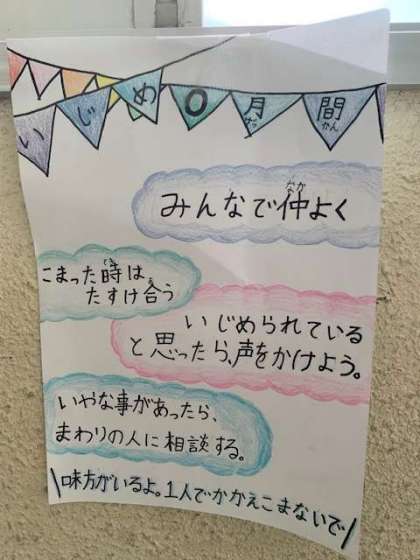 いじめ0月間
みんなで仲よく
こまった時は
たすけ合う
いじめられている
と思ったら、声をかけよう。
いやな事があったら、
まわりの人に相談する。
\味方がいるよ。1人でかかえこまないで/